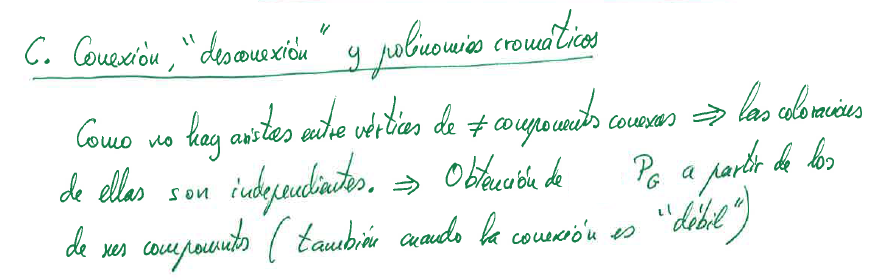 C. Conexión, "desconexión" y polinomios cromáticos
Como no hay aristas entre vértices de ≠ components conexas ⇒ las coloraciones
de ellas son independientes. ⇒ Obtención de P_G a partir de los
de sus components (también cuando la conexión es "débil")